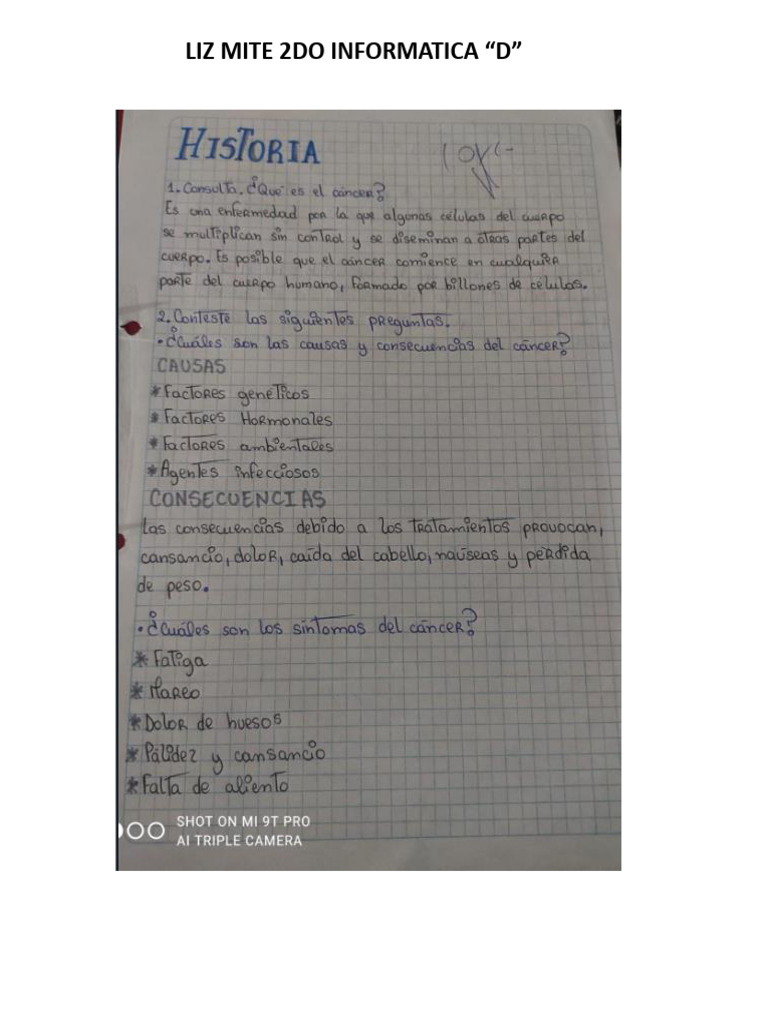 LIZ MITE 2DO INFORMATICA “D”
HISTORIA
1. Consulta. ¿Qué es el cáncer?
Es una enfermedad por la que algunas células del cuerpo
se multiplican sin control y se diseminan a otras partes del
cuerpo. Es posible que el cáncer comience en cualquier
parte del cuerpo humano, formado por billones de células.
2. Conteste las siguientes preguntas.
• ¿Cuáles son las causas y consecuencias del cáncer?
CAUSAS
* Factores genéticos
* Factores Hormonales
* Factores ambientales
* Agentes infecciosos
CONSECUENCIAS
Las consecuencias debido a los tratamientos provocan,
cansancio, dolor, caída del cabello, naúseas y perdida
de peso.
• ¿Cuáles son los síntomas del cáncer?
* Fatiga
* Mareo
* Dolor de huesos
* Pálidez y cansancio
* Falta de aliento
SHOT ON MI 9T PRO
AI TRIPLE CAMERA